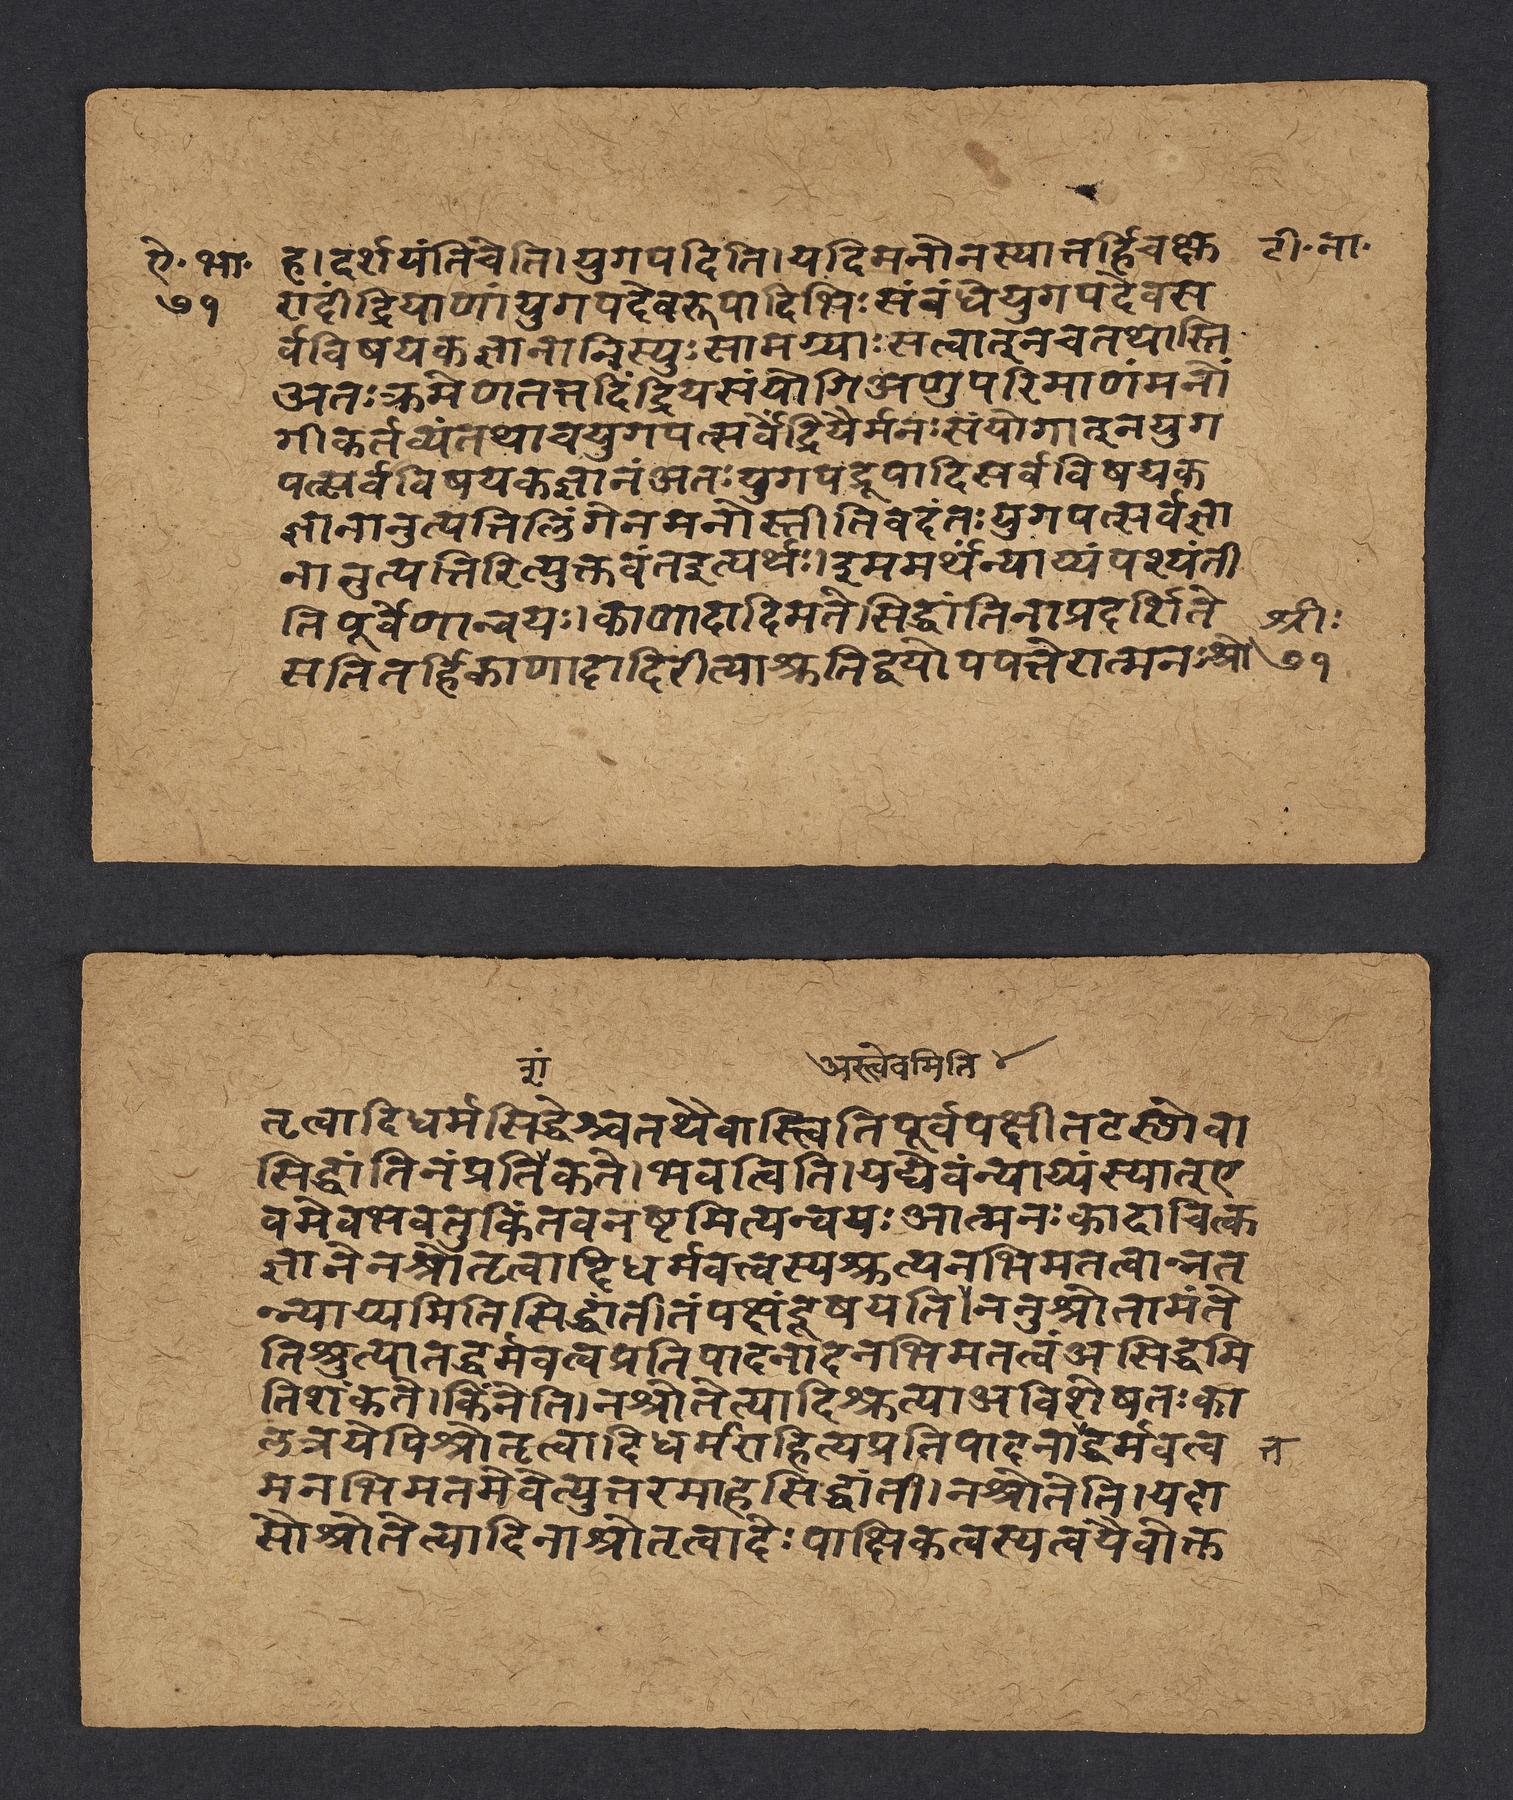 ऐ॰ भा॰ ह। दर्शयंतिचेति। युगपदिति। यदिमनोनस्यात्तर्हिचक्षु टी॰ ना॰
७१ रादींद्रियाणांयुगपदेवरूपादिभिः संबंधेयुगपदेवस
र्वविषयकज्ञानानिस्युः सामग्र्याः सत्वात्‌नचतथास्ति
अतः क्रमेणतत्तदिंद्रियसंयोगिअणुपरिमाणंमनों
गीकर्तव्यंतथाचयुगपत्सर्वेंद्रियैर्मनः संयोगात्‌नयुग
पत्सर्वविषयकज्ञानंअतः युगपद्रूपादिसर्वविषयक
ज्ञानानुत्पत्तिलिंगेनमनोस्तीतिवदंतः युगपत्सर्वज्ञा
नानुत्पत्तिरित्युक्तवंतइत्यर्थः। इममर्थंन्याय्यंपश्यंती
तिपूर्वेणान्वयः। काणादादिमते। सिद्धांतिनाप्रदर्शिते श्रीः
सतितर्हिकाणादादिरीत्याश्रुतिद्वयोपपत्तेरात्मनः श्रो ७१
अस्त्वेवमिति
तृत्वादिधर्मसिद्धेश्चतथैवास्त्वितिपूर्वपक्षीतटस्थोवा
सिद्धांतिनंप्रतिकते। भवत्विति। यद्येवंन्याय्यंस्यात्‌ए
वमेवभवतुकिंतवनष्टमित्यन्वयः आत्मनः कादाचित्क
ज्ञानेनश्रोतृत्वादिधर्मवत्त्वस्यश्रुत्यनभिमतत्वान्नत
न्न्याय्यमितिसिद्धांतीतंपक्षंदूषयति। ननुश्रोतामंते
तिश्रुत्यातद्धर्मवत्वप्रतिपादनादनभिमतत्वंअसिद्धमि
तिशंकते। किंनेति। नश्रोतेत्यादिश्रुत्याअविशेषतः का
लत्रयेपिश्रोतृत्वादिधर्मराहित्यप्रतिपादनाद्धर्मवत्व त
मनभिमतमेवेत्युत्तरमाहसिद्धांती। नश्रोतेति। यदा
सौश्रोतेत्यादिनाश्रोतृत्वादेः पाक्षिकत्वस्यत्वयैवोक्त